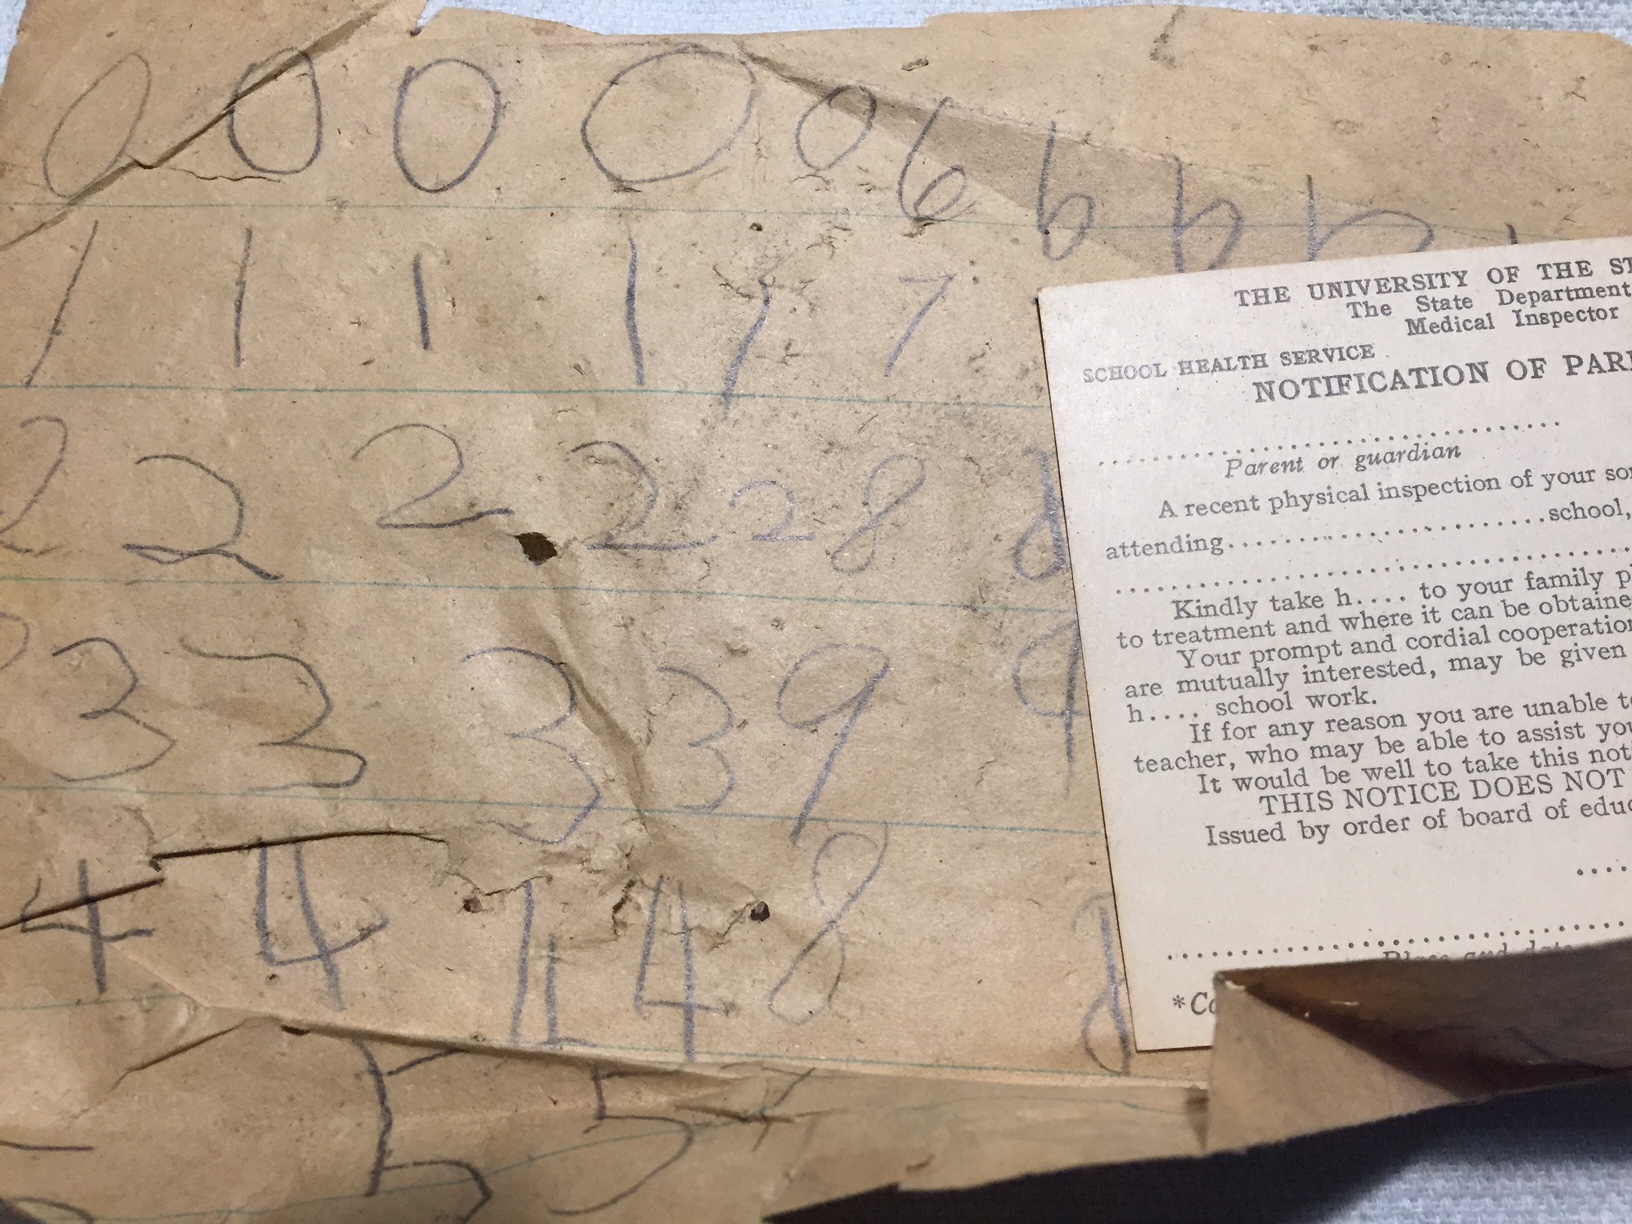 0 0 0 0 0 6 6 6 6
1 1 1 1 7 7
2 2 2 2 2 8 8
3 3 3 3 9 9
4 4 4 4 8 8
5 5
THE UNIVERSITY OF THE ST
The State Department
Medical Inspector
SCHOOL HEALTH SERVICE
NOTIFICATION OF PAR
Parent or guardian
A recent physical inspection of your so
attending....................school,
Kindly take h.... to your family p
to treatment and where it can be obtaine
Your prompt and cordial cooperation
are mutually interested, may be given
h.... school work.
If for any reason you are unable t
teacher, who may be able to assist yo
It would be well to take this not
THIS NOTICE DOES NOT
Issued by order of board of educ
Place and date
*Co